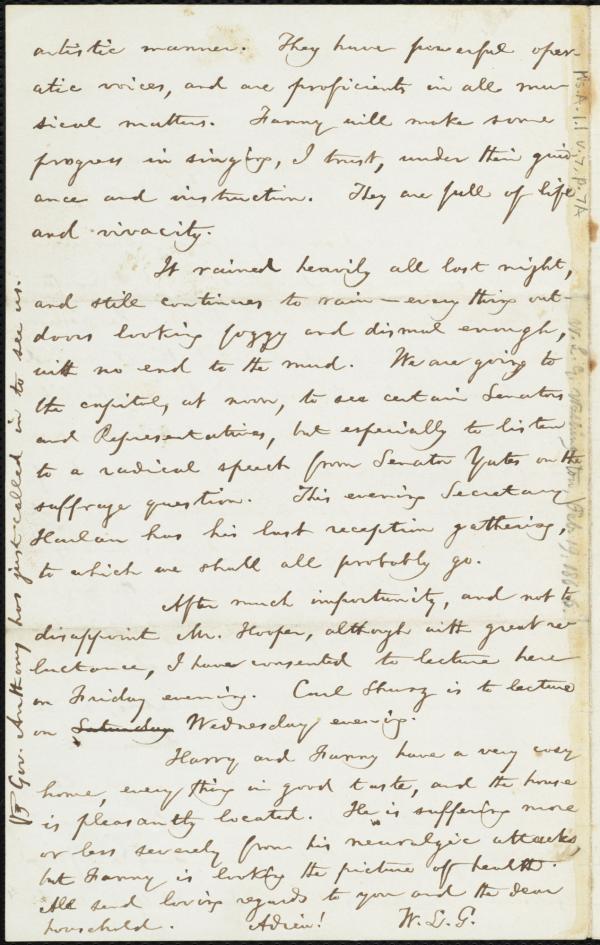 artistic manner. They have powerful oper-
atic voices, and are proficients in all mu-
sical matters. Fanny will make some
progress in singing, I trust, under their guid-
ance and instruction. They are full of life
and vivacity.
It rained heavily all last night,
and still continues to rain—every thing out-
doors looking foggy and dismal enough,
with no end to the mud. We are going to
the capitol, at noon, to see certain Senators
and Representatives, but especially to listen
to a radical speech from Senator Yates on the
suffrage question. This evening Secretary
Harlan has his last reception gathering,
to which we shall all probably go.
After much importunity, and not to
disappoint Mr. Hooper, although with great re-
luctance, I have consented to lecture here
on Friday evening. Carl Shurz is to lecture
on Saturday Wednesday evening.
Harry and Fanny have a very cosy
home, every thing in good taste, and the house
is pleasantly located. He is suffering more
or less severely from his neuralgic attacks,
but Fanny is looking the picture of health.
All send loving regards to you and the dear
household. Adieu! W. L. G.
Gov. Anthony has just called in to see us.
Ms.A.1.1 v.7, p.7A
W. L. G. Washington, Feb. 19, 1866